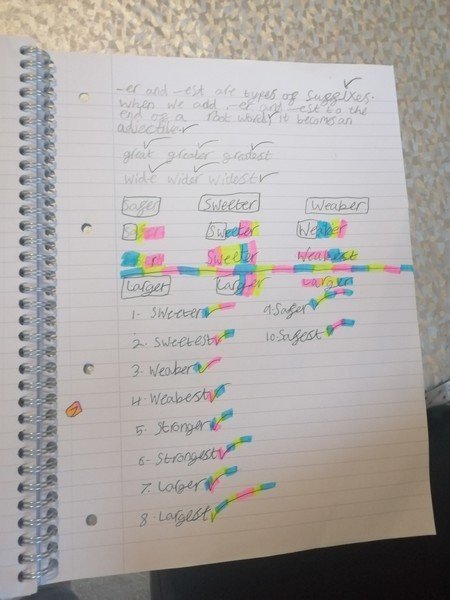 -er and -est are types of suffixes.
when we add -er and -est to the
end of a root word, it becomes an
adjective.
great greater greatest
wide wider widest
Safer Sweeter Weaker
Safer Sweeter Weaker
Safer Sweeter Weakest
Larger Larger Larger
1. Sweeter 9. Safer
2. Sweetest 10. Safest
3. Weaker
4. Weakest
5. Stronger
6. Strongest
7. Larger
8. Largest